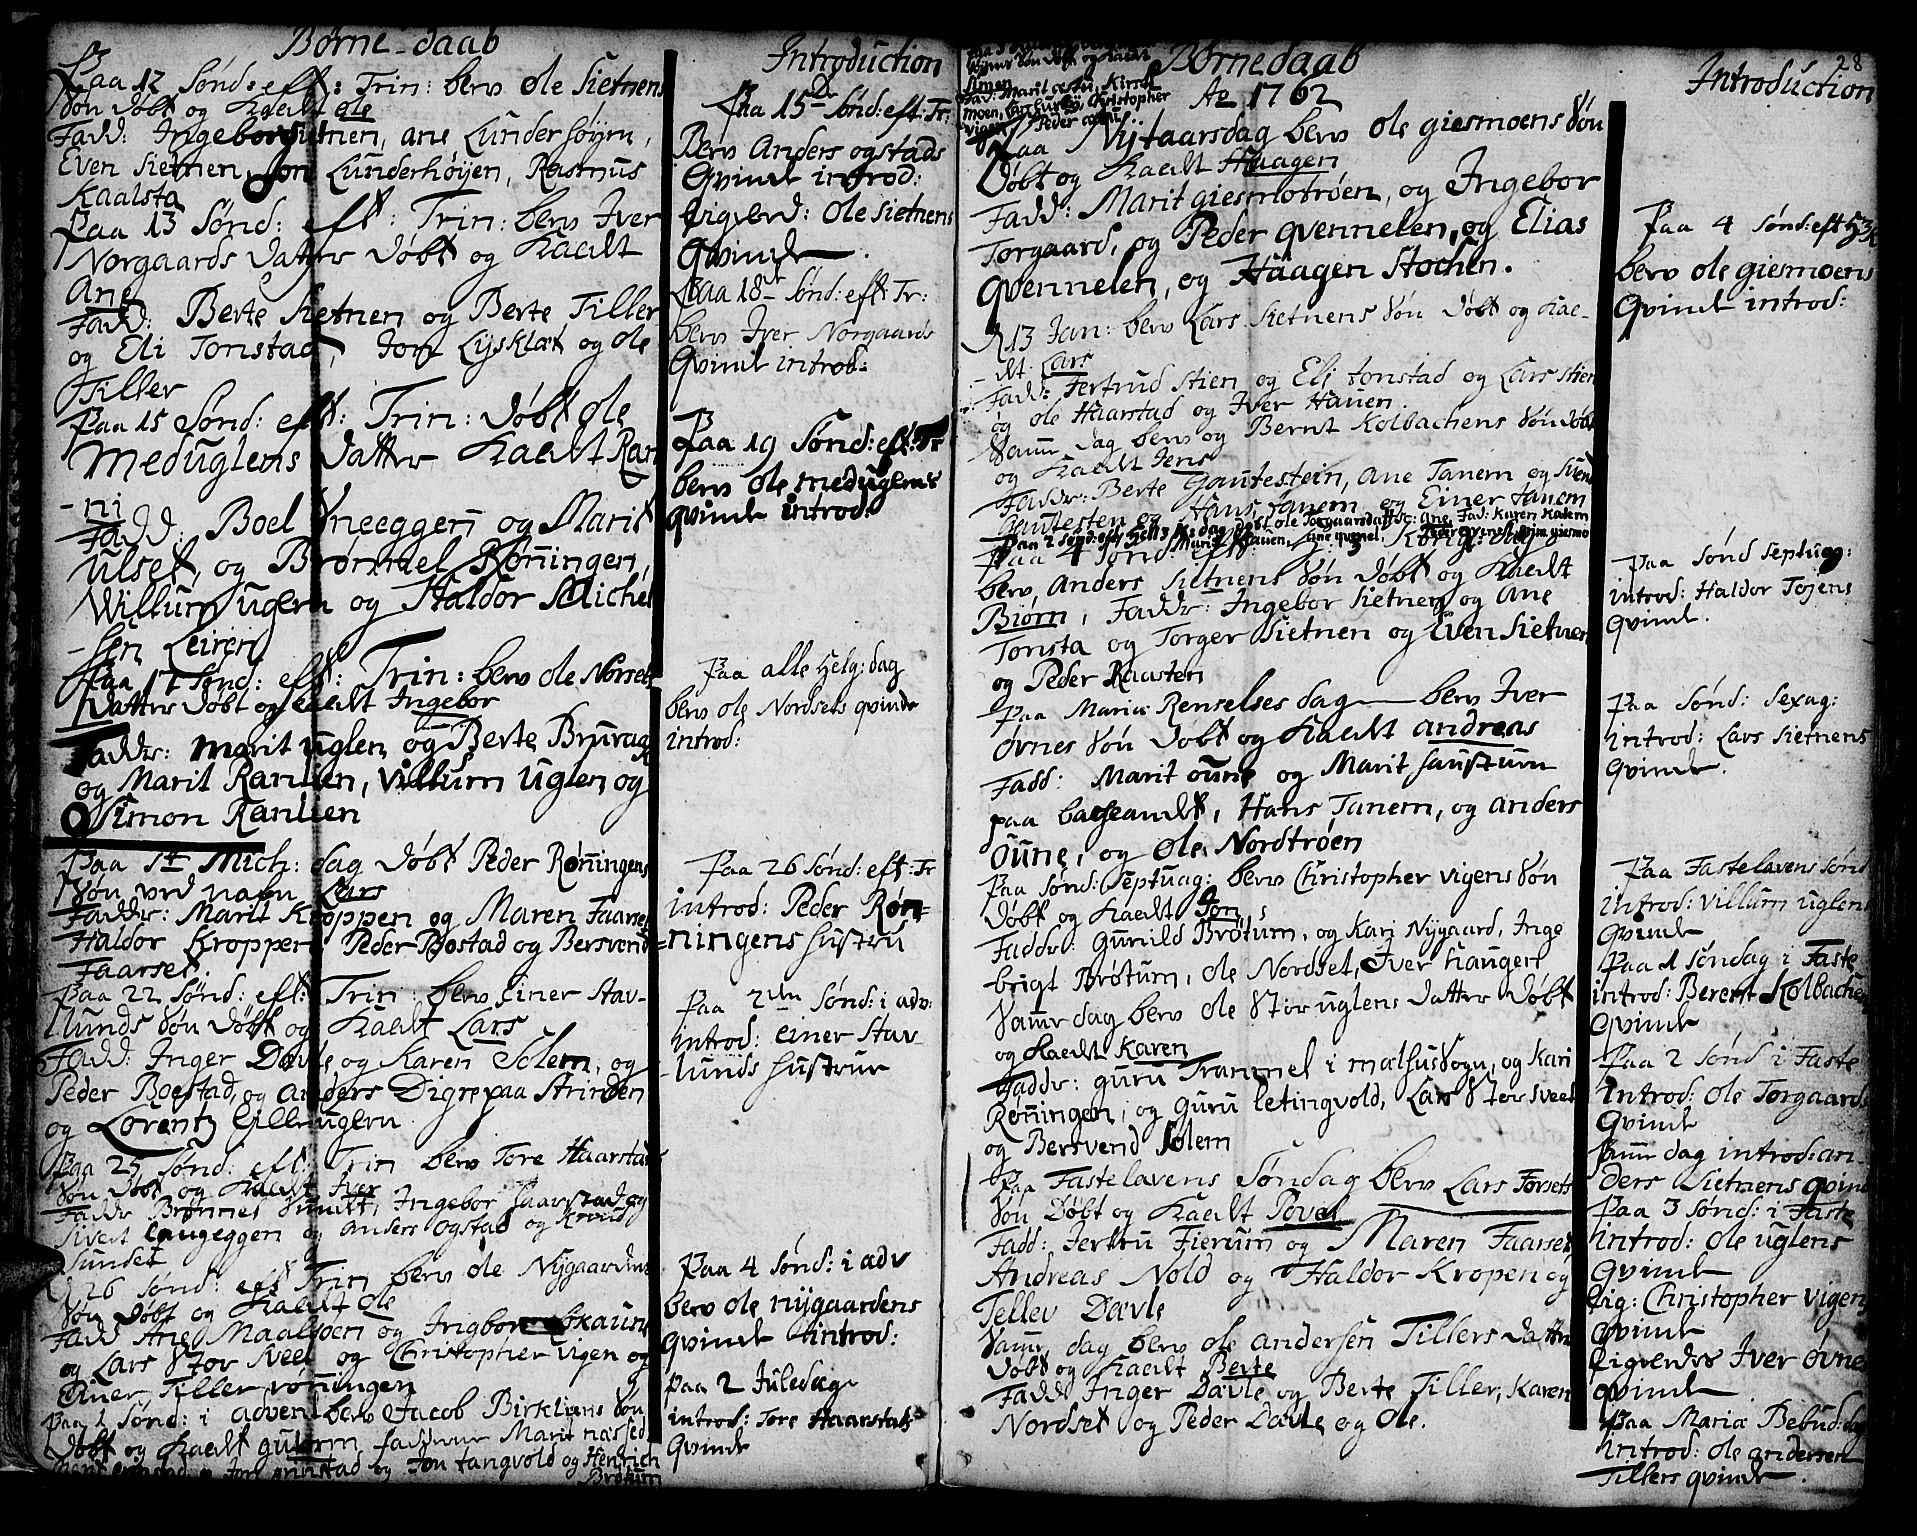 Børne-daab
Paa 12 Sønd: eft: Trin: blev Ole Sietnens
Søn døbt og kaldt Ole
Fadd: Ingebor Sietnen, ane Lundershøyen,
Even Sietnen, Jon Lunderhøyen, Rasmus
Kaalsta
Paa 13 Sønd: eft: Trin: blev Iver
Norgaards datter døbt og kaldt
Ane
Fadd: Berte Sietnen og Berte Tiller
og Eli Tonstad, Jon Lysklæt og Ole
Tiller
Paa 15 Sønd: eft: Trin: døbt Ole
Meduglens datter kaldt Ran
-ni
Fadd: Boel Sneeggen og Marit
Ulset, og Brønnel Rønningen,
Willum Uglen og Haldor Michel
-sen Leiren
Paa 17 Sønd: eft: Trin: blev Ole Norsets
datter døbt og kaldt Ingebor
Faddr: Marit Uglen og Berte Bruvag
og Marit Ranlien, Villum Uglen og
Simon Ranlien
Paa St Mich: dag døbt Peder Rønningens
Søn ved nafn Lars
Faddr: Marit Kroppen og Maren Faarset
Haldor Kroppen Peder Bostad og Bersvend
Faarset.
Paa 22 Sønd: eft: Trin: blev Einer Stav-
lunds Søn døbt og kaldt Lars
Fadd: Inger Davle og Karen Solem, og
Peder Boestad, og Anders Digre paa Strinden
og Lorentz Lilleuglen
Paa 25 Sønd: eft: Trin blev Tore Haarstads
Søn døbt og kaldt Iver
Faddr Brønnel Sundt, Ingebor Haarstad og
Sivert Langeggen og Anders Ogstad og
Sunset
26 Sønd: eft Trin blev Ole Nygaardens
Søn døbt og kaldt Ole
Fadd Ane Maalsøen og Ingbor Skausn
og Lars Stor Svee og Christopher Vigen og
Einer Tiller rønningen
Paa 1 Sønd: i advent blev Jacob Birkliens Søn
døbt og kaldt Gulorm, faddrene Marit
Jon tangvold og Henrich
Brøttum
Introduction
Paa 15de Sønd: eft: Tr:
Blev Anders Ogstads
Qvinde introd:
Ligeled: Ole Sietnens
Qvinde.
Paa 18de Sønd: eft Tr:
blev Iver Norgaards
Qvinde introd:
Paa 19 Sønd: eft: Tr
blev Ole Meduglens
qvinde introd:
Paa alle Helg: dag
blev Ole Nordsets qvinde
introd:
Paa 26 Sønd: eft: Tr
introd: Peder Røn-
ningens hustru
Paa 2den Sønd: i adv:
introd: Einer Stav-
lunds hustrue
Paa 4 Sønd: i adv
blev Ole Nygaardens
qvinde introd:
Paa 2 Juledag
introd: Tore Haarstads
Qvinde
Børnedaab
Ao 1762
Paa Nytaarsdag blev Ole Giesmoens Søn
døbt og kaldt Haagen
Fadd: Marit Giesmotrøen, og Ingebor
Torgaard, og Peder Qvennelen, og Elias
Qvennelen, og Haagen Stochen.
13 Jan: blev Lars Sietnens Søn døbt og kal-
-dt Lars
Fadd: Jertrud Stien og Eli Tonstad og Lars Stien
og Ole Haarstad og Iver Hauen.
Samme dag blev og Bernt Kolbachens Søn døbt
og kaldt Jens
Faddr: Berte Gautestein, Ane Tanem og Siver
Gautesten og Hans Tanem og Einer Tanem
Paa 4 Sønd: eft: H. 3 Kongers dag
blev Anders Sietnens Søn døbt og kaldt
Biørn, Faddr: Ingebor Sietnen og Ane
Tonsta og Torger Sietnen og Even Sietnen
og Peder Raasten
Paa Mariæ Renselses dag blev Iver
Øvnes Søn døbt og kaldt Andreas
Fadd: Marit Oune og Marit Saustum
paa bageandt, Hans Tanem, og Anders
Oune, og Ole Nordtrøen
Paa Sønd: Septuag: blev Christopher Vigens Søn
døbt og kaldt Jon
Faddr: Gunild Brøtum, og Kari Nygaard, Inge
brigt Brøtum, Ole Nordset, Iver Haugen
Samme dag blev Ole Storuglens datter døbt
og kaldt Karen
Faddr: Guru Trammel i Malhus Sogn, og Kari
Rønningen, og Guru Letingvold, Lars Stor Sveet
og Bersvend Solem
Paa Fastelavens Søndag blev Lars Forsets
Søn døbt og kaldt Povel
Fadd: Jertru Fierem og Maren Faarset
Andreas Nold og Haldor Kropen og
Tellev Davle
Samme dag blev Ole Andersen Tillers datter
døbt og kaldt Berte
Fadd Inger Davle og Berte Tiller, Karen
Nordset og Peder Davle og Ole.
28
Introduction
Paa 4 Sønd: eft H 3 K
blev Ole Giesmoens
Qvinde introd:
Paa Sønd Septuag:
introd: Haldor Tøjens
qvinde.
Paa Sønd: Sexag:
introd: Lars Sietnens
qvinde.
Paa Fastelavens Sønd
introd: Villum Uglens
Qvinde
Paa 1 Søndag i Faste
introd: Berent Kolbachen
Qvinde
Paa 2 Sønd i Faste
introd: Ole Torgaards
Qvinde
Samme dag introd: An-
ders Sietnens qvinde
Paa 3 Sønd: i Faste
introd: Ole Uglens
Qvinde
Lig: Christopher Vigen
Qvinde
Ligeledes Iver Øvnes
qvinde
Paa Mariæ Bebud: dag
introd: Ole Andersen
Tillers qvinde.